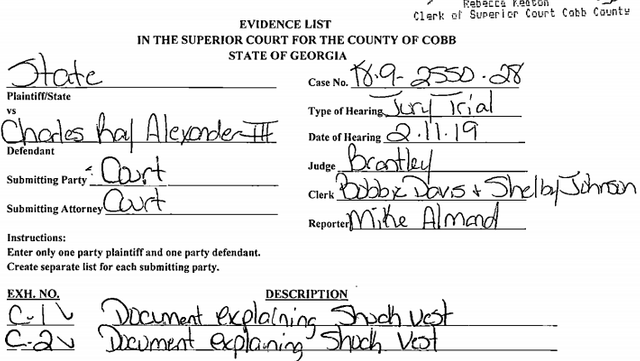 Rebecca Keaton
Clerk of Superior Court Cobb County
EVIDENCE LIST
IN THE SUPERIOR COURT FOR THE COUNTY OF COBB
STATE OF GEORGIA
State
Plaintiff/State
vs
Charles Ray Alexander III
Defendant
Submitting Party: Court
Submitting Attorney Court
Case No. 18.9-2550.28
Type of Hearing Jury Trial
Date of Hearing 2.11.19
Judge Brantley
Clerk Bobbx Davis + Shelby Johnson
Reporter Mike Almand
Instructions:
Enter only one party plaintiff and one party defendant.
Create separate list for each submitting party.
EXH. NO. DESCRIPTION
C-1 ✓ Document explaining Shock Vest
C-2 ✓ Document explaining Shock Vest